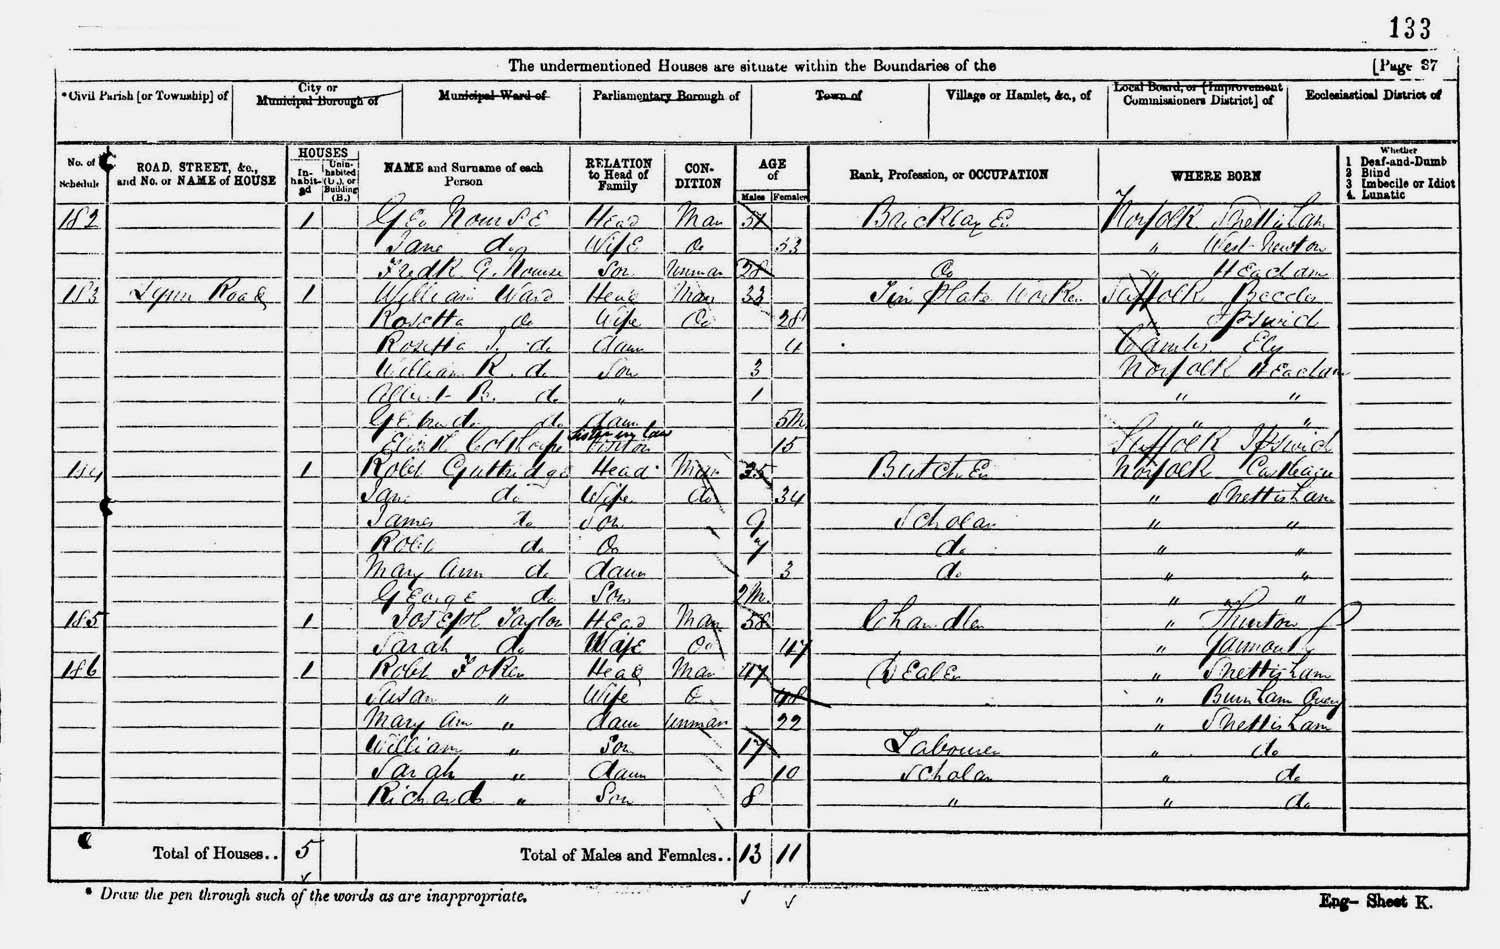 133
The undermentioned Houses are situate within the Boundaries of the [Page 37
*Civil Parish [or Township] of City or Municipal Borough of Municipal Ward of Parliamentary Borough of Town of Village or Hamlet, &c., of Local Board, or [Improvement Commissioners District] of Ecclesiastical District of
No. of Schedule ROAD, STREET, &c., and No. or NAME of HOUSE HOUSES In-habit-ed Unin-habited (U.), or Building (B.) NAME and Surname of each Person RELATION to Head of Family CON-DITION AGE of Males Females Rank, Profession, or OCCUPATION WHERE BORN Whether 1 Deaf-and-Dumb 2 Blind 3 Imbecile or Idiot 4. Lunatic
182 1 Geo Nourse Head Mar 57 Bricklayer Norfolk Snettisham
Jane do Wife Do 53 " West Newton
Fredk G. Nourse Son Unmar 28 Do " Heacham
183 Lynn Road 1 William Ward Head Mar 33 Tin Plate Worker Suffolk Beccles
Rosetta do Wife Do 28 " Ipswich
Rosetta do daur 4 Cambs Ely
William R. do Son 3 Norfolk Heacham
Albert B. do " 1 " "
do daur 5M " "
Elizth Sister in law Visitor 15 Suffolk Ipswich
184 1 Robt Head Mar 35 Butcher Norfolk
Jane do Wife do 34 " Snettisham
James do Son 9 Scholar " "
Robt do Do 7 do " "
Mary Ann do daur 3 do " "
George do Son 2M. " "
185 1 Joseph Taylor Head Mar 58 Chandler "
Sarah do Wife Do 47 " Yarmouth
186 1 Robt Head Mar 47 Dealer " Snettisham
Susan " Wife Do 48 " Burnham Overy
Mary Ann " daur Unmar 22 " Snettisham
William " Son 17 Labourer " do
Sarah " daur 10 Scholar " do
Richard " Son 8 " " do
Total of Houses.. 5 Total of Males and Females.. 13 11
* Draw the pen through such of the words as are inappropriate.
Eng— Sheet K.